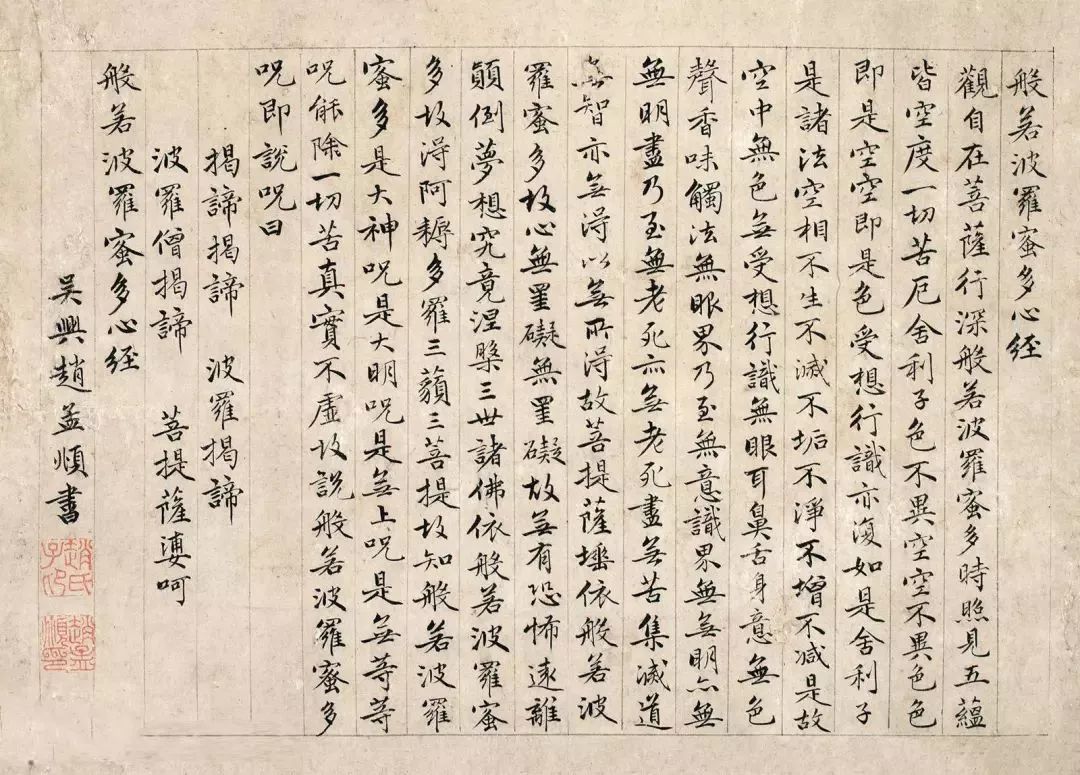 般若波羅蜜多心經
觀自在菩薩行深般若波羅蜜多時照見五蘊
皆空度一切苦厄舍利子色不異空空不異色色
即是空空即是色受想行識亦復如是舍利子
是諸法空相不生不滅不垢不淨不增不減是故
空中無色無受想行識無眼耳鼻舌身意無色
聲香味觸法無眼界乃至無意識界無無明亦無
無明盡乃至無老死亦無老死盡無苦集滅道
無智亦無得以無所得故菩提薩埵依般若波
羅蜜多故心無罣礙無罣礙故無有恐怖遠離
顛倒夢想究竟涅槃三世諸佛依般若波羅蜜
多故得阿耨多羅三藐三菩提故知般若波羅
蜜多是大神咒是大明咒是無上咒是無等等
咒能除一切苦真實不虛故說般若波羅蜜多
咒即說咒曰
揭諦揭諦 波羅揭諦
波羅僧揭諦 菩提薩婆呵
般若波羅蜜多心經
吳興趙孟頫書
趙氏子昂
趙孟頫印